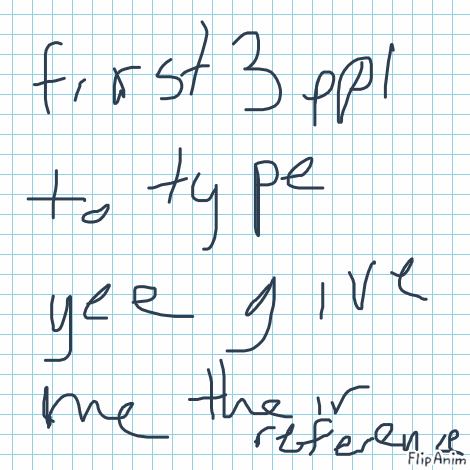 first 3 ppl
to type
yee give
me their
reference
FlipAnim